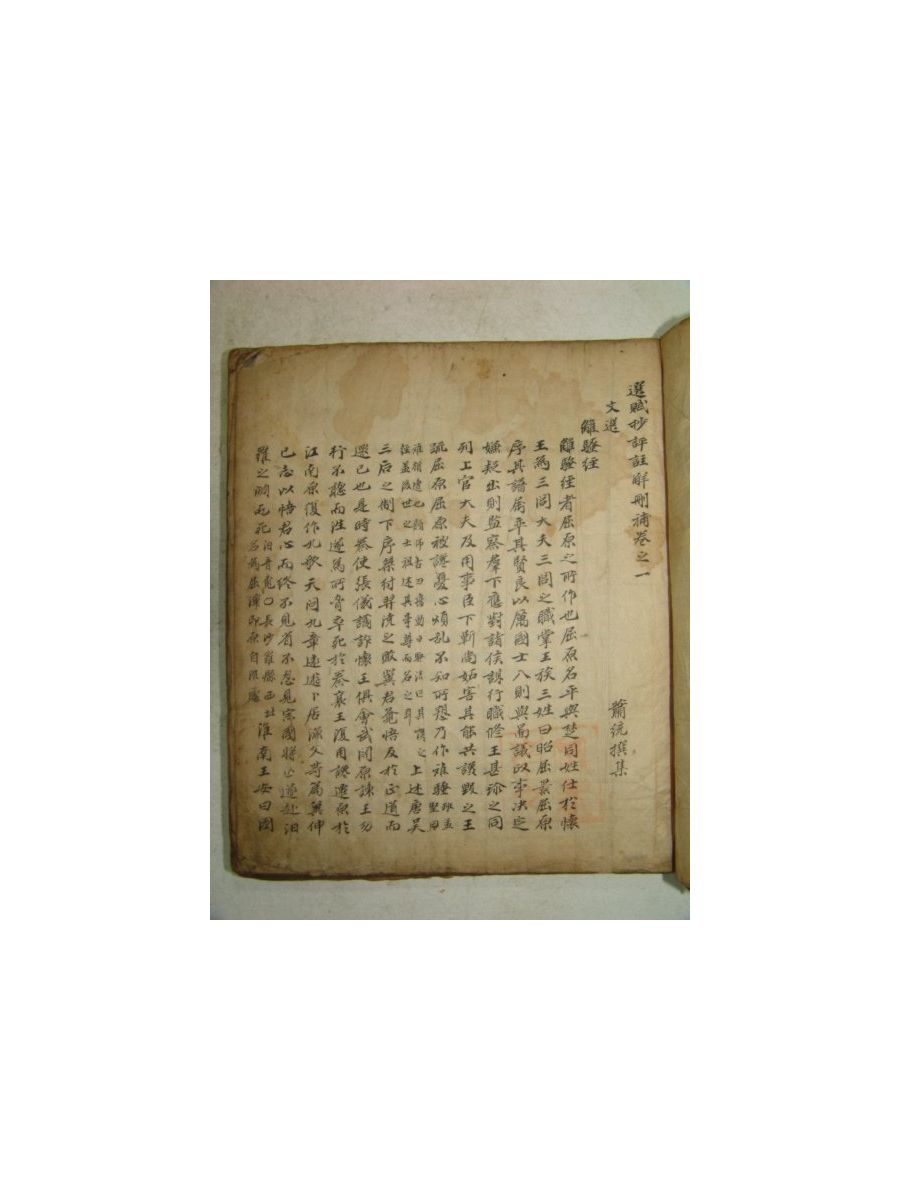 選賦抄評註解刪補卷之一
文選 蕭統撰集
離騷經
離騷經者屈原之所作也屈原名平與楚同姓仕於懷
王爲三閭大夫三閭之職掌王族三姓曰昭屈景屈原
序其譜屬率其賢良以厲國士入則與王圖議政事決定
嫌疑出則監察羣下應對諸侯謀行職修王甚珍之同
列上官大夫及用事臣下靳尚妬害其能共譖毀之王
疏屈原屈原被譖憂心煩乱不知所愬乃作離騷 班孟堅曰
離猶遭也 顏師古曰 擾動曰騷 之上述唐虞
經盖後世之士祖述其辭尊而名之耳
三后之制下序桀紂羿澆之敗冀君覺悟反於正道而
還已也是時秦使張儀譎詐懷王俱會武関原諫王勿
行不聽而往遂爲所脅卒死於秦襄王復用譖遷原於
江南原復作九歌天问九章遠遊卜居漁父等篇冀伸
已志以悟君心而終不見省不忍見宗國將亡遂赴汨
羅之淵而死 長沙羅縣西北 淮南王安曰國